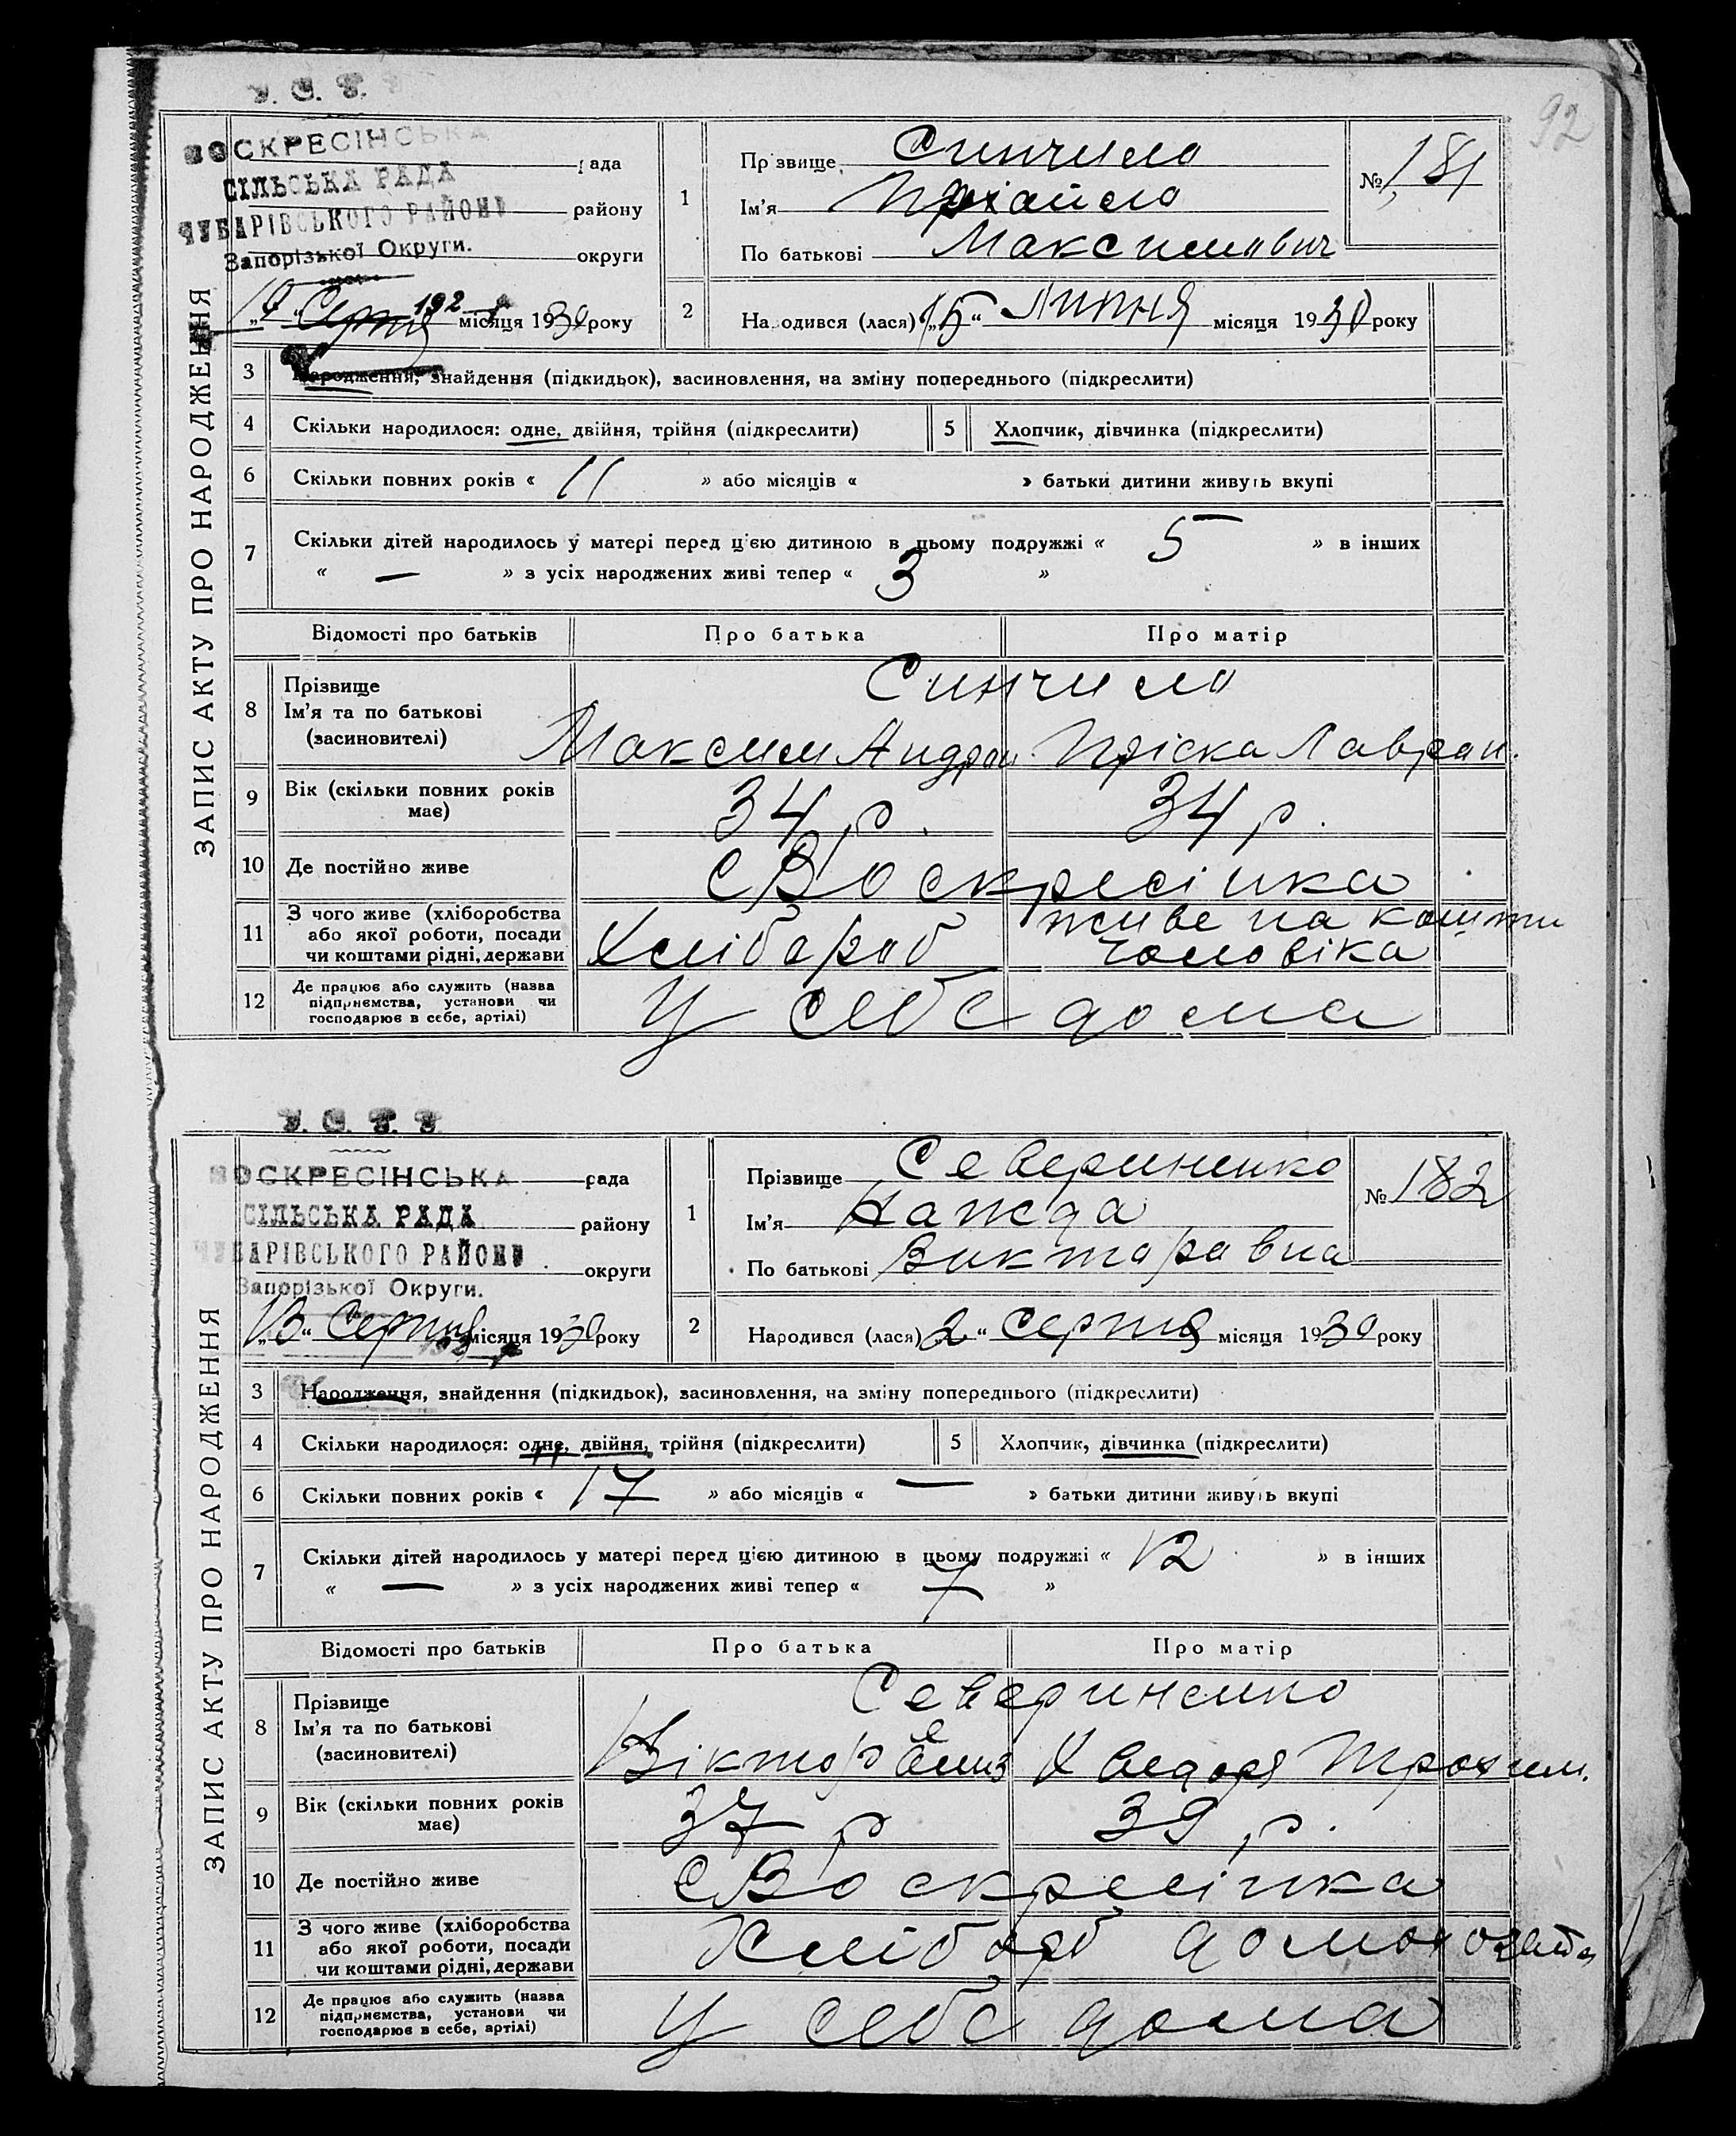 92
У. С. Р.
ВОСКРЕСІНСЬКА рада
СІЛЬСЬКА РАДА
ЧУБАРІВСЬКОГО РАЙОНУ району
Запорізької Округи. округи
Серпня місяця 1930 року
ЗАПИС АКТУ ПРО НАРОДЖЕННЯ
1 Прізвище Синчило
Ім'я Михайло
По батькові Максимович
№ 181
2 Народився (лася) „15“ Липня місяця 1930 року
3 Народження, знайдення (підкидьок), засиновлення, на зміну попереднього (підкреслити)
4 Скільки народилося: одне, двійня, трійня (підкреслити) 5 Хлопчик, дівчинка (підкреслити)
6 Скільки повних років « 11 » або місяців « » батьки дитини живуть вкупі
7 Скільки дітей народилось у матері перед цією дитиною в цьому подружжі « 5 » в інших
« — » з усіх народжених живі тепер « 3 »
Відомості про батьків Про батька Про матір
8 Прізвище Синчило
Ім'я та по батькові (засиновителі) Максим Андрон. Пріска Лаврен.
9 Вік (скільки повних років має) 34 р. 34 р.
10 Де постійно живе с Воскресінка
11 З чого живе (хліборобства або якої роботи, посади чи коштами рідні, держави Хлібораб живе на кошти чоловіка
12 Де працює або служить (назва підприємства, установи чи господарює в себе, артілі) У себе дома
У. С. Р. Р.
ВОСКРЕСІНСЬКА рада
СІЛЬСЬКА РАДА району
ЧУБАРІВСЬКОГО РАЙОНУ
Запорізької Округи. округи
„13“ Серпня місяця 1930 року
ЗАПИС АКТУ ПРО НАРОДЖЕННЯ
1 Прізвище Севериненко
Ім'я Нажда
По батькові Викторавна
№ 182
2 Народився (лася) „2“ серпня місяця 1930 року
3 Народження, знайдення (підкидьок), засиновлення, на зміну попереднього (підкреслити)
4 Скільки народилося: одне, двійня, трійня (підкреслити) 5 Хлопчик, дівчинка (підкреслити)
6 Скільки повних років « 17 » або місяців « — » батьки дитини живуть вкупі
7 Скільки дітей народилось у матері перед цією дитиною в цьому подружжі « 12 » в інших
« — » з усіх народжених живі тепер « 7 »
Відомості про батьків Про батька Про матір
8 Прізвище Севериненко
Ім'я та по батькові (засиновителі) Віктор Хведора Трохим.
9 Вік (скільки повних років має) 37 р 39 р.
10 Де постійно живе с Воскресінка
11 З чого живе (хліборобства або якої роботи, посади чи коштами рідні, держави Хлібораб
12 Де працює або служить (назва підприємства, установи чи господарює в себе, артілі) У себе дома